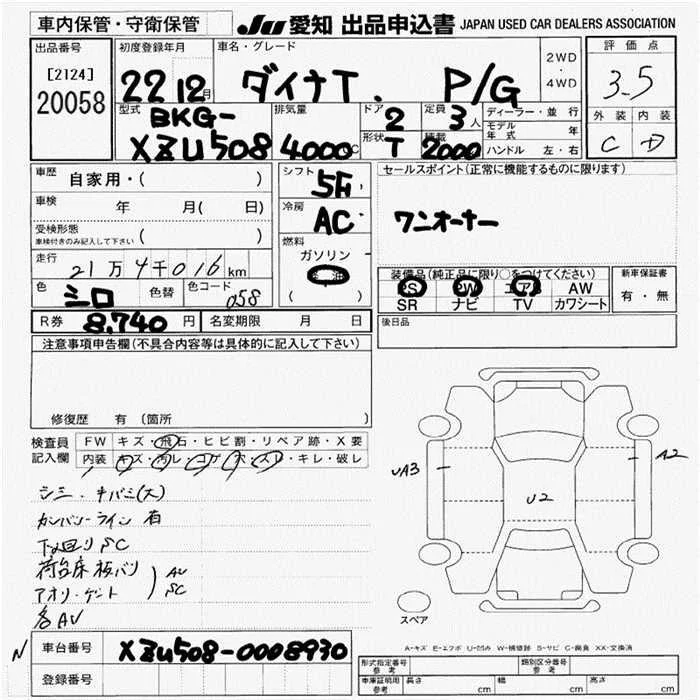 車内保管・守衛保管
JU 愛知 出品申込書 JAPAN USED CAR DEALERS ASSOCIATION
出品番号 初度登録年月 車名・グレード 評価点
[2124] 2WD
20058 22 12月 ダイナT. P/G ・ 3-5
4WD
型式 排気量 ドア 定員 ディーラー・並行 外装 内装
BKG- 2 3人 モデル年式 年
XZU508 4000cc 形状 T 積載 2000 ハンドル 左・右 C D
車歴 自家用・( ) シフト 5F セールスポイント(正常に機能するものに限ります)
車検 年 月( 日) 冷房 AC ワンオーナー
受検形態 ( )
車検付きのみ記入して下さい
燃料
ガソリン
走行 21万4千016km ( )
装備品(純正品に限り○をつけてください) 新車保証書
色 シロ 色替 色コード 058 PS PW エアB AW 有・無
SR ナビ TV カワシート
R券 8,740円 名変期限 月 日 後日品
注意事項申告欄(不具合内容等は具体的に記入して下さい)
修復歴 有 (箇所
検査員 FW キズ・飛石・ヒビ割・リペア跡・X要
記入欄 内装 キズ・ヨレ・コゲ・穴・スレ・キレ・破レ
シミ・キバミ(大)
カンバンライン有
下回りSC
荷台床板バリ AU
アオリ・ゲート SC
各AU
UA3 A2
U2
スペア
A-キズ E-エクボ U-凹み W-補修跡 S-サビ C-腐食 XX-交換済
N 車台番号 XZU508-0008930
登録番号
形式指定番号 参考 類別区分番号 参考
車庫証明用 参考 長さ cm 幅 cm 高さ cm